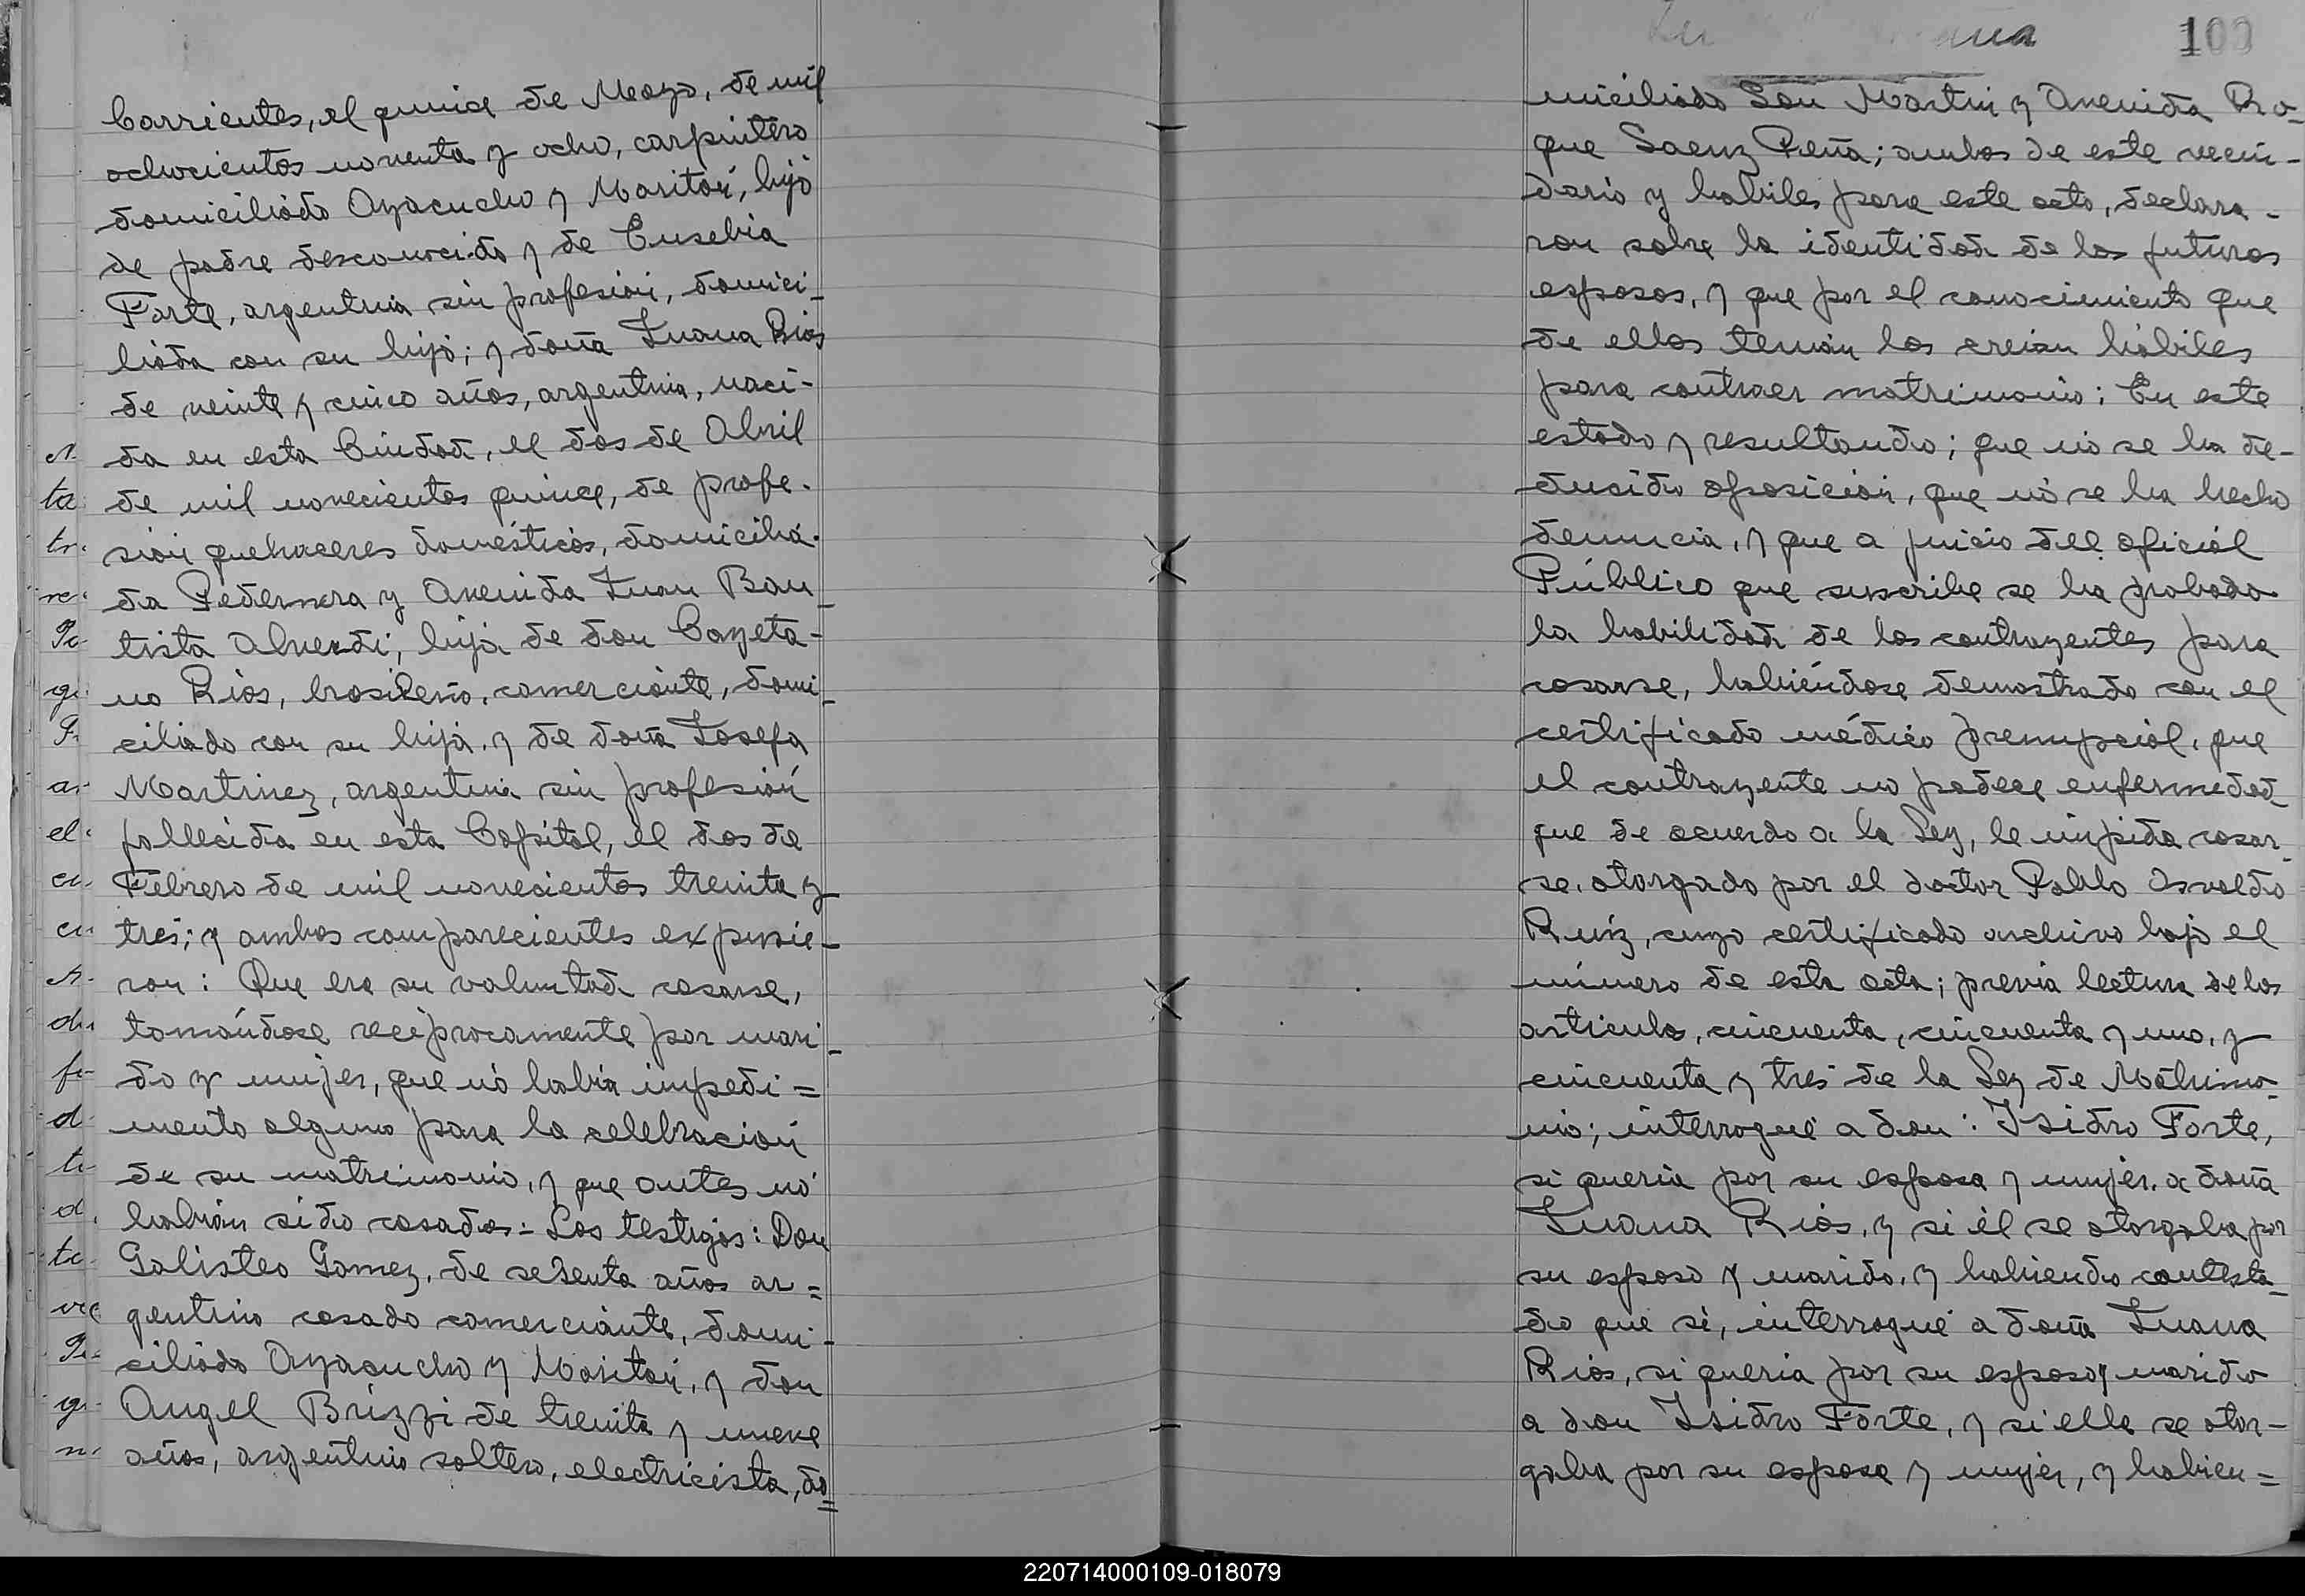 Corrientes, el quince de Mayo, de mil
ochocientos noventa y ocho, carpintero
domiciliado Ayacucho y Moritán, hijo
de padre desconocido y de Eusebia
Forte, argentina sin profesión, domici-
liada con su hijo; y doña Juana Rios
de veinte y cinco años, argentina, naci-
da en esta Ciudad, el dos de Abril
de mil novecientos quince, de profe-
sión quehaceres domésticos, domicilia-
da Pedernera y Avenida Juan Bau-
tista Alverdi; hija de don Cayeta-
no Rios, brasileño, comerciante, domi-
ciliado con su hija, y de doña Josefa
Martinez, argentina sin profesión
fallecida en esta Capital, el dos de
Febrero de mil novecientos treinta y
tres; y ambos comparecientes expusie-
ron: Que era su voluntad casarse,
tomándose recíprocamente por mari-
do y mujer, que nó habia impedi=
mento alguno para la celebración
de su matrimonio, y que antes nó
habián sido casados = Los testigos: Don
Galisteo Gomez, de sesenta años ar=
gentino casado comerciante, domi-
ciliado Ayacucho y Moritán, y don
Angel Brizzi de treinta y nueve
años, argentino soltero, electricista, do=
100
miciliado San Martin y Avenida Ro-
que Saenz Peña; ambos de este vecin-
dario y habiles para este acto, declara-
ron sobre la identidad de los futuros
esposos, y que por el conocimiento que
de ellos tenián los creián hábiles
para contraer matrimonio; En este
estado y resultando; que nó se ha de-
ducido oposición, que nó se ha hecho
denuncia, y que a juicio del oficial
Público que suscribe se ha probado
la habilidad de los contrayentes para
casarse, habiéndose demostrado con el
certificado médico prenupciál, que
el contrayente no padece enfermedad
que de acuerdo a la Ley, le impida casar-
se, otorgado por el doctor Pablo Osvaldo
Ruíz, cuyo certificado archivo bajo el
número de esta acta; previa lectura de los
articulos, cincuenta, cincuenta y uno, y
cincuenta y tres de la Ley de Matrimo-
nio; interrogué a don: Isidro Forte,
si queria por su esposa y mujer, a doña
Juana Rios, y si él se otorgaba por
su esposo y marido, y habiendo contesta-
do que sí, interrogué a doña Juana
Rios, si queria por su esposo y marido
a don Isidro Forte, y si ella se otor-
gaba por su esposa y mujer, y habien=
220714000109-018079